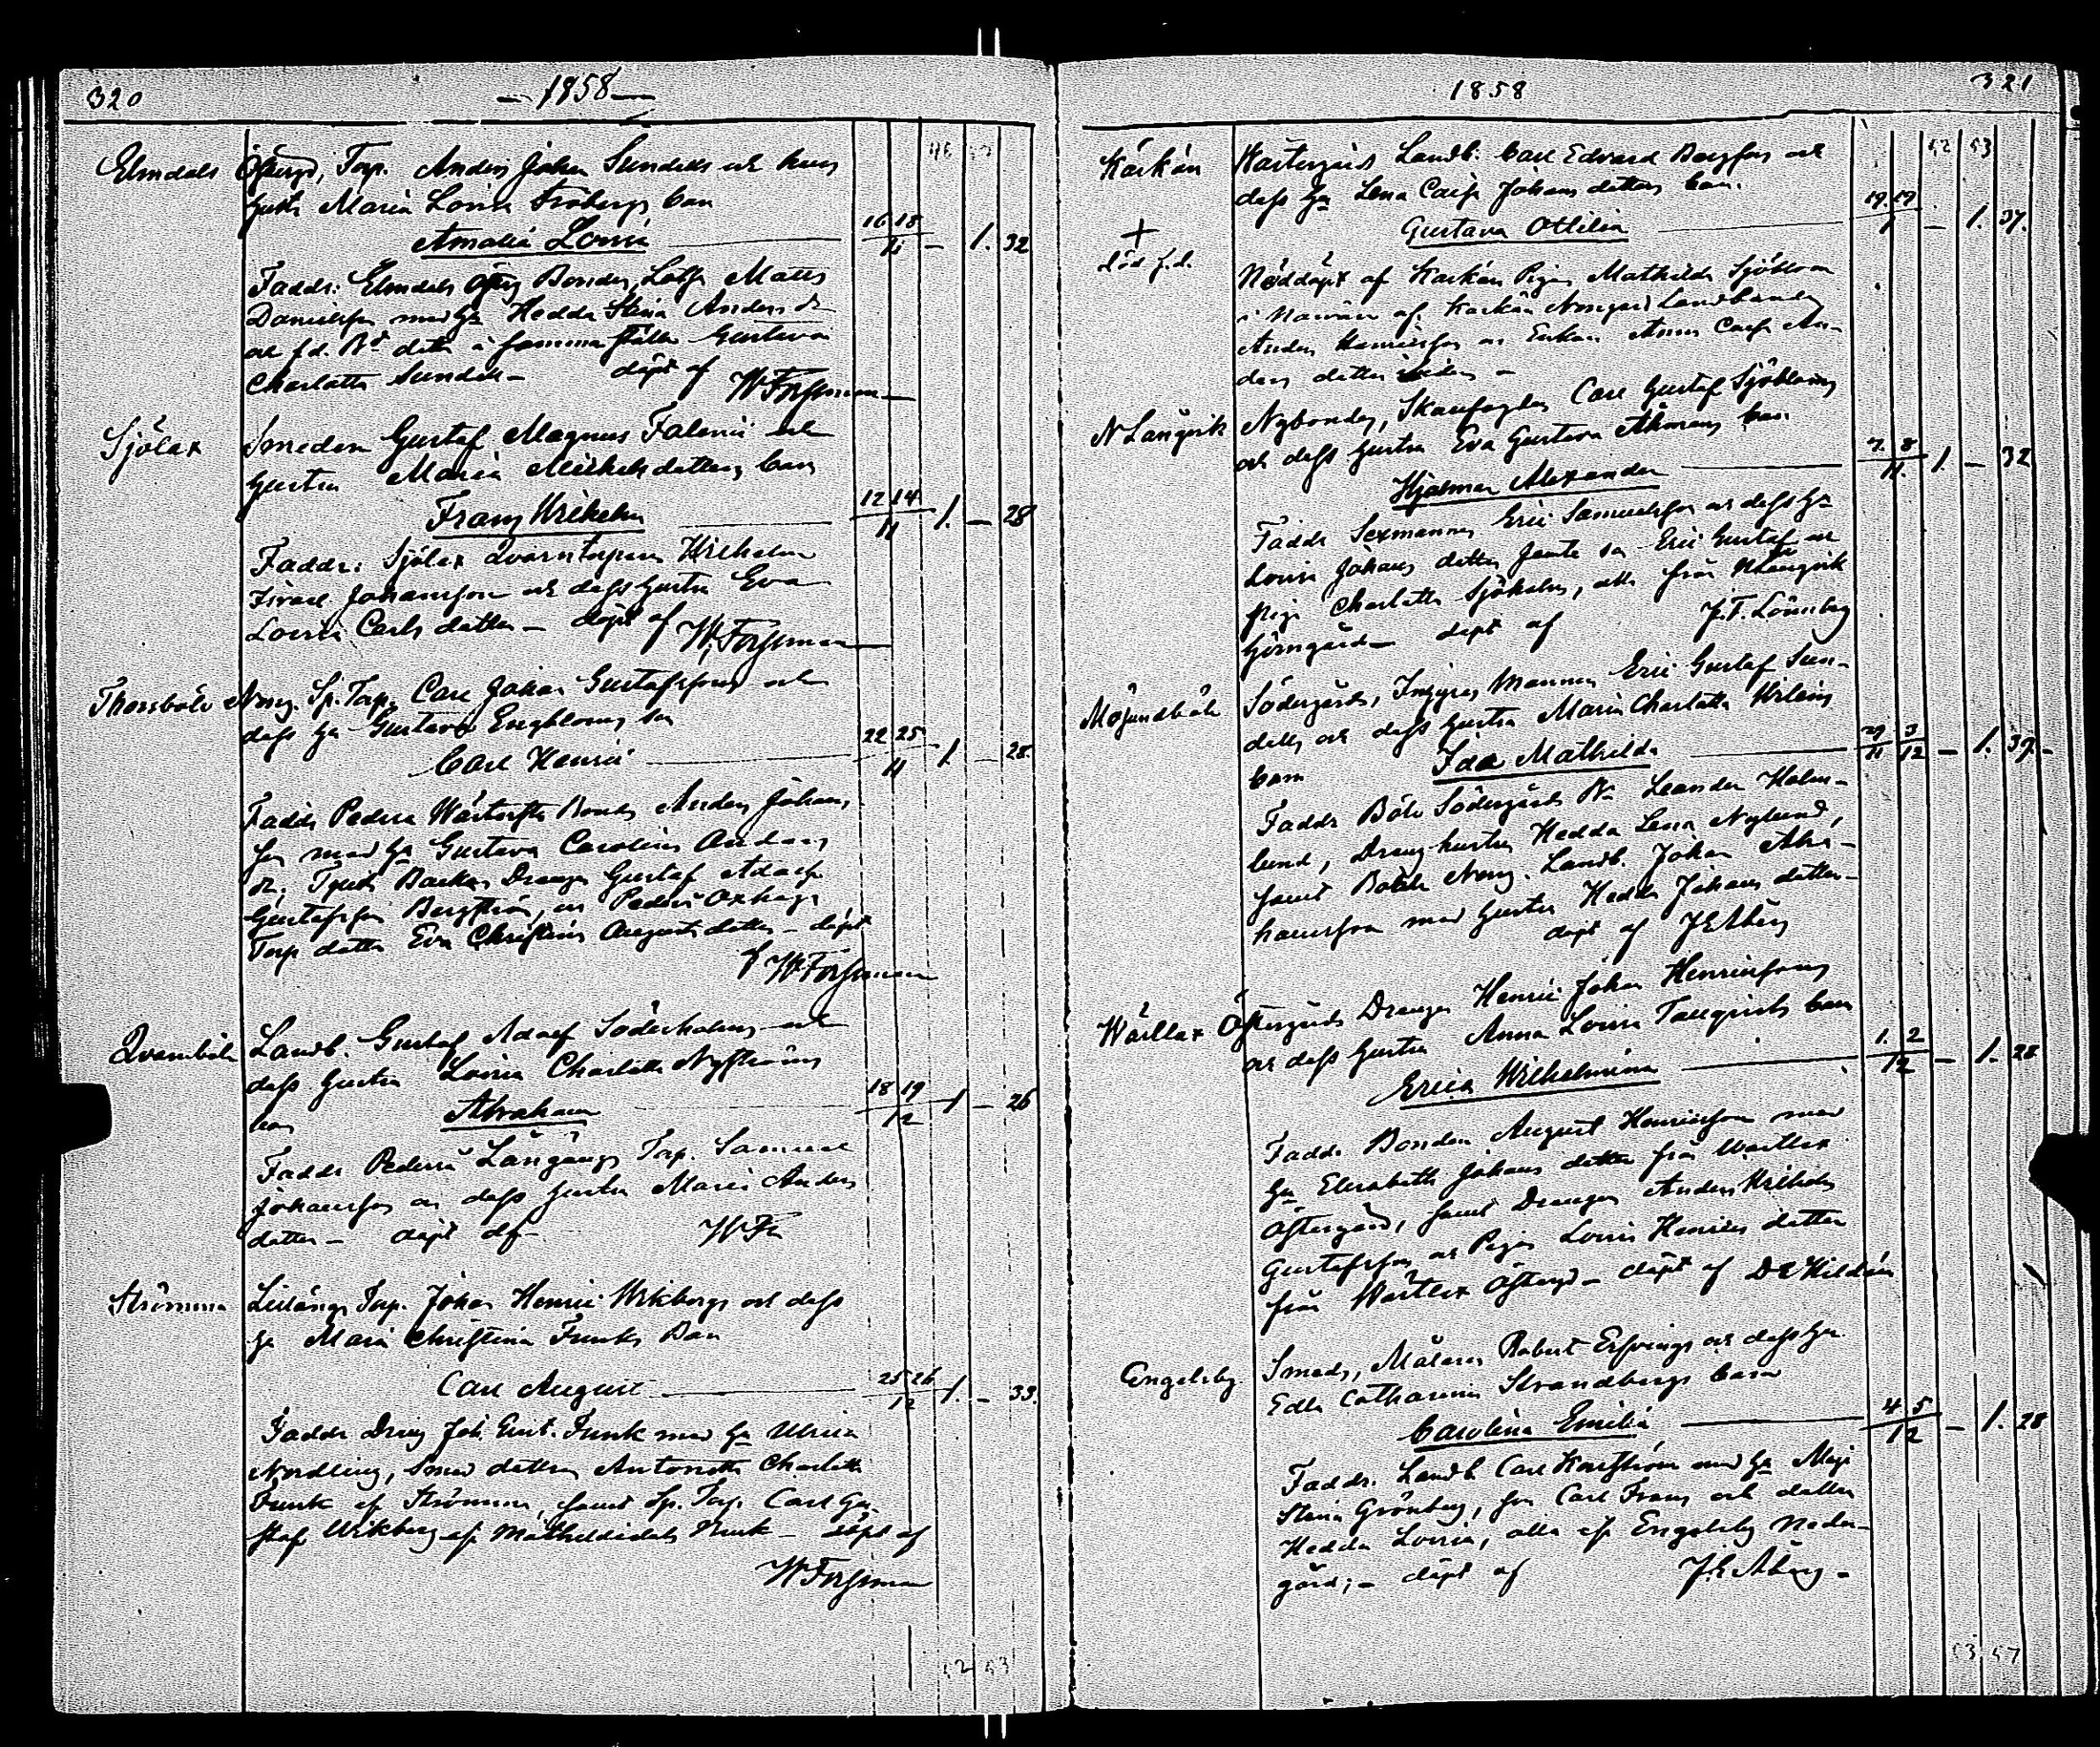 320
— 1858 —
46
Elmdals Östergd, Torp. Anders Johan Sundells och hans
hustr Maria Lovisa Frobergs barn
Amalia Lovisa 16 18 / 11 — 1. 32
Faddr: Elmdals Bonden, Mats
Danielsson med hu Hedda Stina Anders dr
och f.d. Bd dotter i samma ställe Gustava
Charlotta Sundell — döpt af W Forssman
Sjölax Smeden Gustaf Magnus Falenii och
hustru Maria Michelsdotters barn
Franz Wilhelm 12 14 / 11 1. — 28
Faddr: Sjölax Qvarntorparen Wilhelm
Israel Johansson och dess hustru Eva
Lovisa Carls dotter — döpt af W. Forssman
Thorsböle Norrg. Sp. Torp. Carl Johan Gustafssons och
dess hu Gustava Engbloms son
Carl Henric 22 25 / 11 1. — 28
Faddr Pederså Bonden Anders Johans
son med hu Gustava Carolina Anders
dr; Backas Drengen Gustaf Adolf
Gustafsson Bergström, och Pederså Oxhaga
Torp dotter Eva Christina Augusts dotter — döpt
af W Forssman
Qvarnböle Landb. Gustaf Adolf Söderholms och
dess hustru Lovisa Charlotta Nyströms
barn Abraham 18 19 / 12 1 — 26
Faddr Pederså Långängs Torp. Samuel
Johansson och dess hustru Maria Anders
dotter — döpt af W Fn
Strömma Lillängs Torp. Johan Henric Wikbergs och dess
hu Maria Christina Funks Barn
Carl August 25 26 / 12 1. — 33.
Faddr Dreng Joh. Gust. Funk med hu Ulrica
Nordling, Smed dottren Antonetta Charlotta
Funk af Strömma samt Sp. Torp. Carl Gu-
staf Wikberg af Mathildedals Bruk — döpt af
W Forssman
52 53
1858
321
52 53
Kärkän Wästergårds Landb. Carl Edvard Bergfors och
dess hu Lena Caisa Johans dotters barn.
Gustava Ottilia 19. 19 — 1. 37.
+
död f.d.
Nöddöpt af Karkän Pigan Mathilda Sjöblom
i närvaro af Karkän Norrgård Landbonden
Anders Henricsson och Enkan Anna Caisa An-
ders dotter
N Långvik Nybondens, Skarpfogden Carl Gustaf Sjöbloms
och dess hustru Eva Gustava Åkmans barn
Hjalmar Alexander 7. 8 / 11. 1. — 32
Faddr Sexmannen Eric Samuelsson och dess hu
Lovisa Johans dotter jemte son Eric Gustaf och
pigan Charlotta Sjöholm, alla från N Långvik
Görsgård — döpt af J. F. Lönnberg
Mösundböle Södergårds, Inhyses Mannen Eric Gustaf Sun-
dells och dess hustru Maria Charlotta Wilens
barn Ida Mathilda 29 3 / 11 12 — 1. 37 —
Faddr Böle Södergårds Bn Leander Holm-
lund, Dreng hustrun Hedda Lena Nylund,
samt Böle Norrg. Landb. Johan Abra-
hamsson med hustru Hedda Johans dotter —
döpt af J E Åberg
Wärtlax Östergårds Drengen Henric Johan Henricssons
och dess hustru Anna Lovisa Tallqvists barn
Erica Wilhelmina 1. 2 / 12 — 1. 28
Faddr Bonden August Henricsson med
hu Elisabeth Johans dotter från Wärtlax
Östergård, samt Drengen Anders Wilhelm
Gustafsson och Pigan Lovisa Henrics dotter
från Wärtlax Östergd — döpt af D E Hildén
Engelsby Smeds, Målaren Robert Ervings och dess hu
Edla Catharina Strandbergs barn
Carolina Emilia 4 5 / 12 — 1. 28
Faddr. Landb. Carl Kortström med hu Maja
Stina Grönberg, son Carl Franz och dotter
Hedda Lovisa, alla af Engelsby Neder-
gård; — döpt af J. E Åberg —
53 57